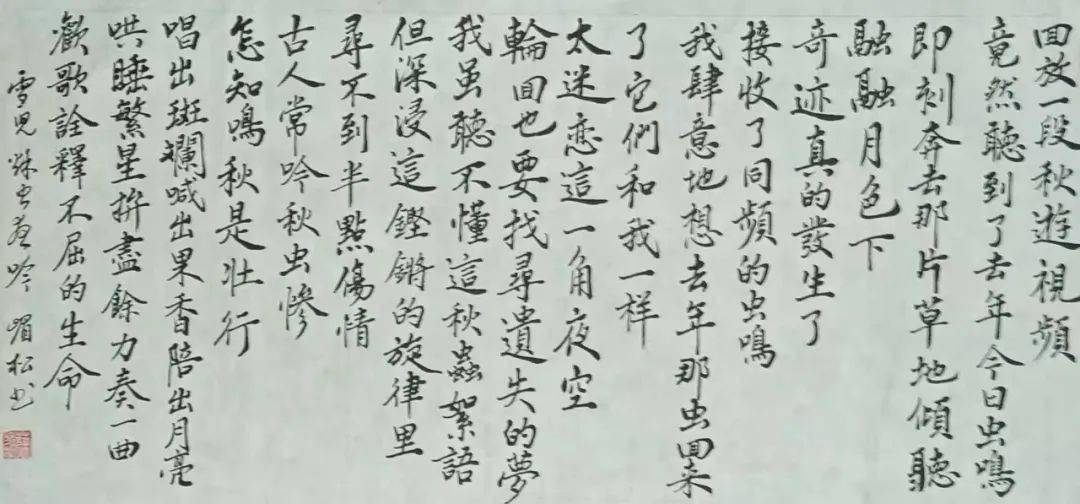 回放一段秋遊視頻
竟然聽到了去年今日虫鳴
即刻奔去那片草地傾聽
融融月色下
奇迹真的發生了
接收了同頻的虫鳴
我肆意地想去年那虫回来
了它們和我一样
太迷恋這一角夜空
輪回也要找尋遺失的夢
我虽聽不懂這秋蟲絮語
但深浸這鏗鏘的旋律里
尋不到半點傷情
古人常吟秋虫慘
怎知鳴秋是壮行
唱出斑斕喊出果香陪出月亮
哄睡繁星拚盡餘力奏一曲
歡歌詮釋不屈的生命
雪児 虫夜吟 松书